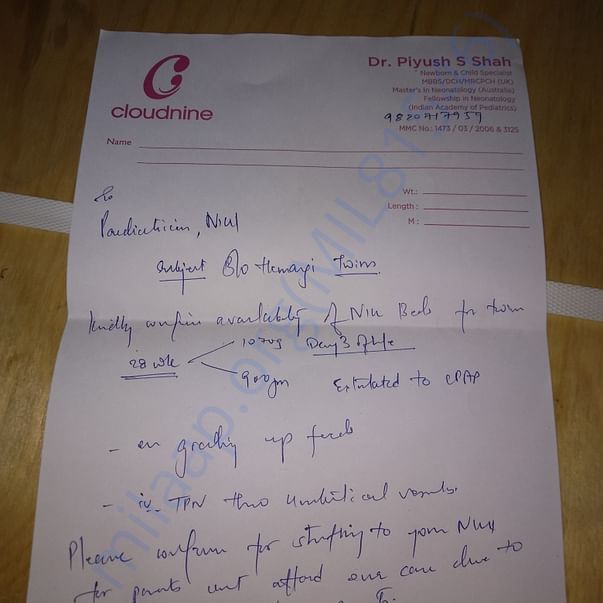 cloudnine
Dr. Piyush S Shah
Newborn & Child Specialist
MBBS/DCH/MRCPCH (UK)
Master's in Neonatology (Australia)
Fellowship in Neonatology
(Indian Academy of Pediatrics)
9820717957
MMC No.: 1473 / 03 / 2006 & 3125
Name
Wt.:
Length :
M :
To
Paediatrician, NICU
Subject B/o Hemangi Twins
Kindly confirm availability of NICU Beds for twin
28 wk
1070g Day 3 of life
900gm Extubated to CPAP
- on grading up feeds
- iv TPN thro umbilical vessels.
Please confirm for shifting to your NICU
for parents cant afford our care due to
milaap.org(MIL81